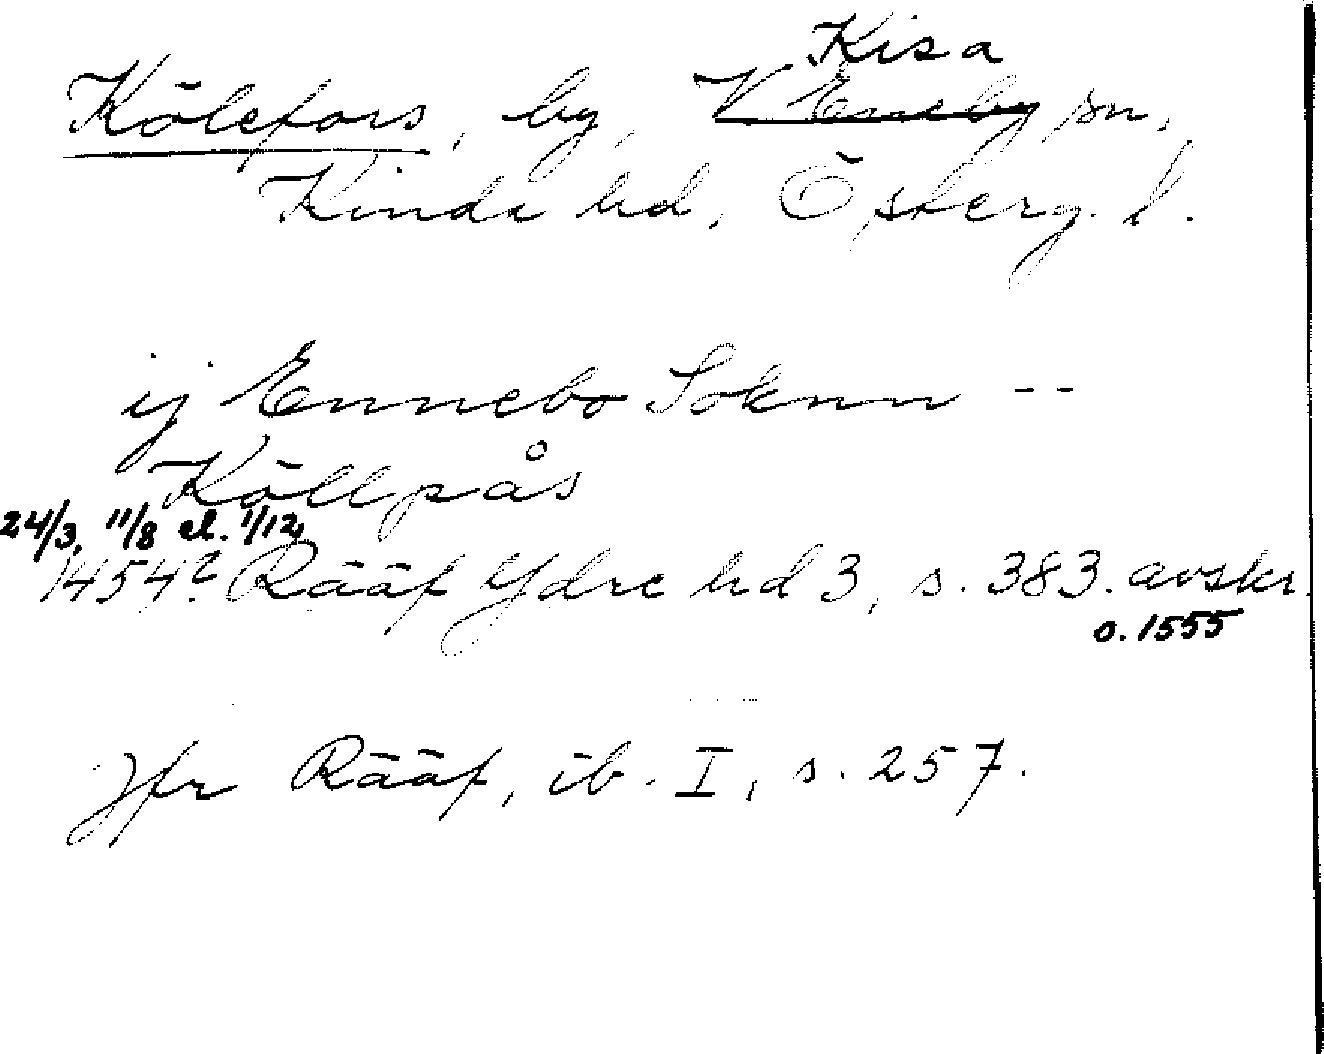 Kisa
Kölefors, by, V Eneby sn,
Kinda hd, Österg. l.
ij Ennebo Soknn --
Köllpås
24/3, 11/8 el. 1/12,
1454? Rääf Ydre hd 3, s. 383. avskr.
o. 1555
Jfr Rääf, ib. I, s. 257.